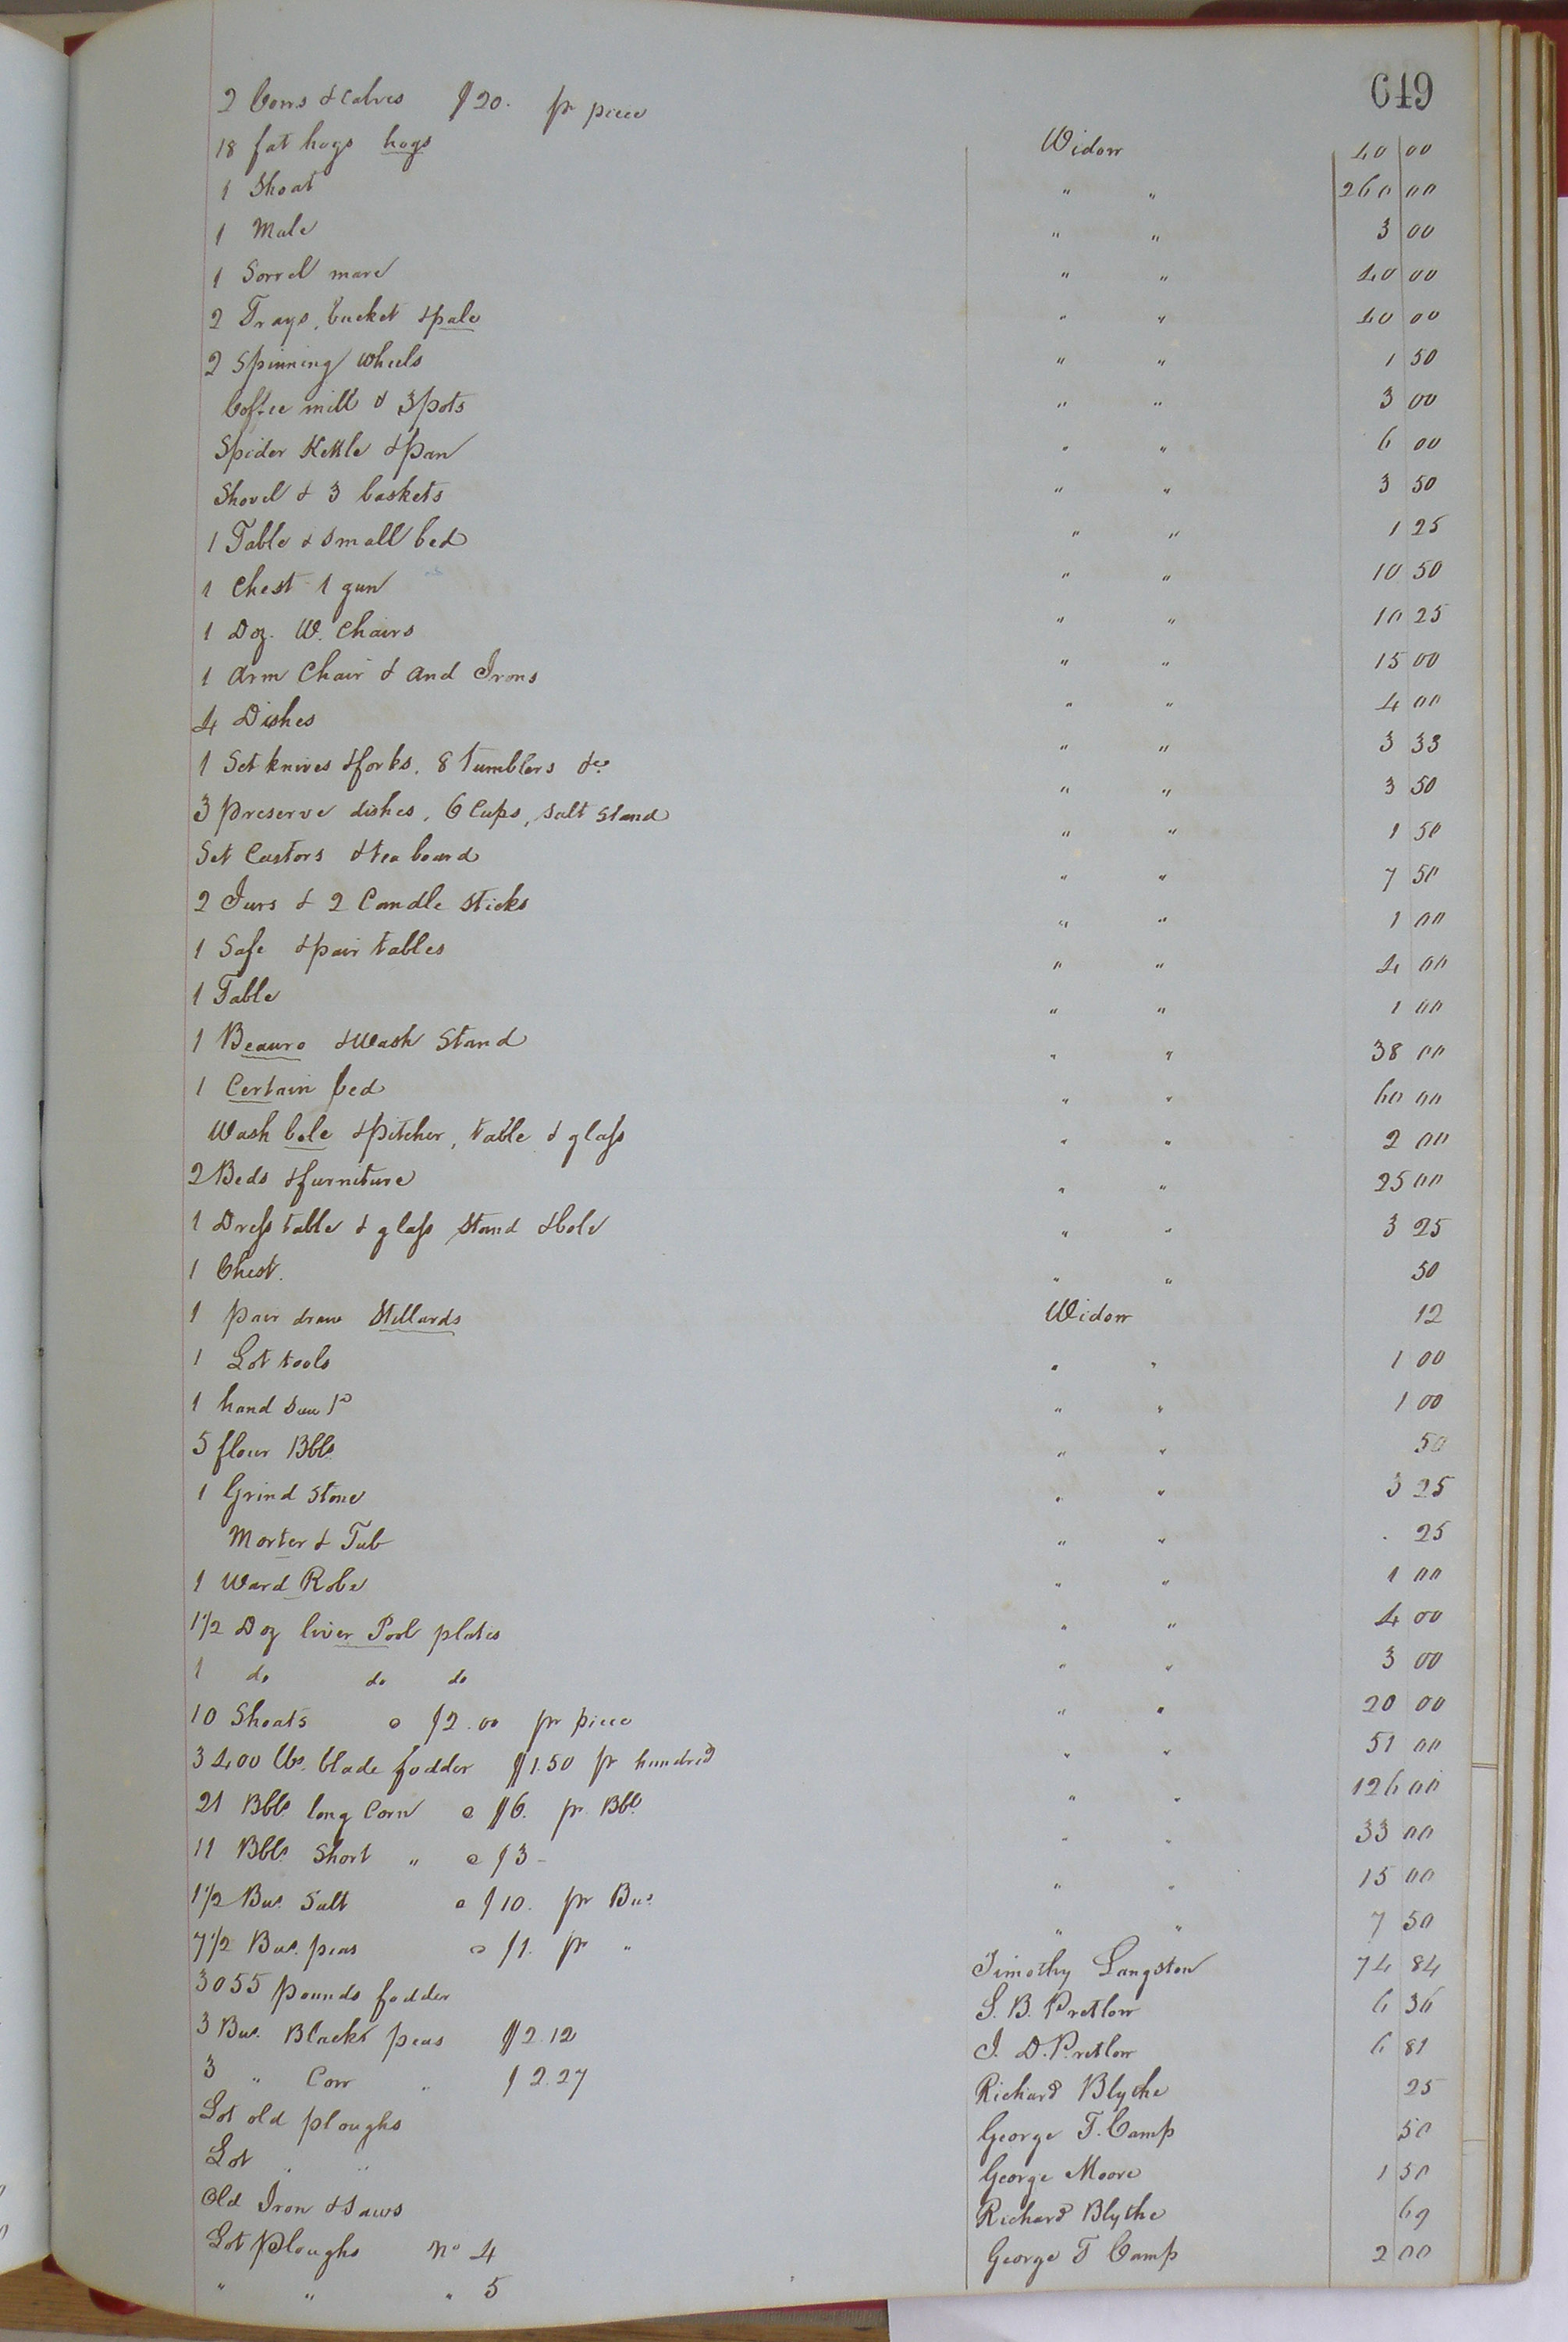 649
2 Cows & calves $20. pr piece Widow 40 00
18 fat hogs hogs " " 260 00
1 Shoat " " 3 00
1 Mule " " 40 00
1 Sorrel mare " " 40 00
2 Trays, bucket & pale " " 1 50
2 Spinning wheels " " 3 00
Coffee mill & 3 pots " " 6 00
Spider Kettle & pan " " 3 50
Shovel & 3 baskets " " 1 25
1 Table & small bed " " 10 50
1 Chest 1 gun " " 10 25
1 Doz. W. Chairs " " 15 00
1 Arm Chair & and Irons " " 4 00
4 Dishes " " 3 33
1 Set knives & forks, 8 tumblers &c. " " 3 50
3 Preserve dishes, 6 Cups, Salt Stand " " 1 50
Set Castors & tea board " " 7 50
2 Jars & 2 Candle sticks " " 1 00
1 Safe & pair tables " " 4 00
1 Table " " 1 00
1 Beauro & Wash Stand " " 38 00
1 Certain bed " " 60 00
Wash bole & pitcher, table & glass " " 2 00
2 Beds & furniture " " 25 00
1 Dress table & glass stand & bole " " 3 25
1 Chest. " " 50
1 pair draw Stillards Widow 12
1 Lot tools " " 1 00
1 hand saw " " 1 00
5 flour Bbls " " 50
1 Grind Stone " " 3 25
Morter & Tub " " 25
1 Ward Robe " " 1 00
1 1/2 Doz liver Pool plates " " 4 00
1 do do do " " 3 00
10 Shoats @ $2.00 pr piece " " 20 00
3400 lbs. blade fodder $1.50 pr hundred " " 51 00
21 Bbls long Corn @ $6. pr Bbl. " " 126 00
11 Bbls Short " @ $3 - " " 33 00
1 1/2 Bus. Salt @ $10. pr Bus. " " 15 00
7 1/2 Bus. peas @ $1. pr " " " 7 50
3055 pounds fodder Timothy Langston 74 84
3 Bus. Black peas $2.12 S. B. Pretlow 6 36
3 " Corn " $2.27 J. D. Pretlow 6 81
Lot old ploughs Richard Blythe 25
Lot " " George T. Camp 50
Old Iron & Saws George Moore 1 50
Lot Ploughs No 4 Richard Blythe 69
" " " 5 George T Camp 2 00